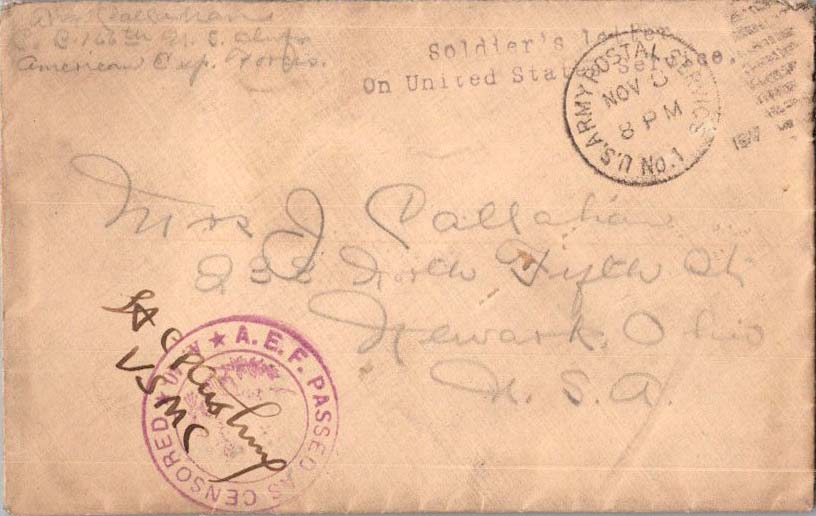 Callahan
Co. B. 166th U. S. Infr
American Exp. Forces.
Soldier's letter
On United States Service.
U.S. ARMY POSTAL SERVICE
NOV
8 PM
1917
Mrs J Callahan
232 North Fifth St
Newark, Ohio
U. S. A.
USMC
A.E.F. PASSED AS CENSORED